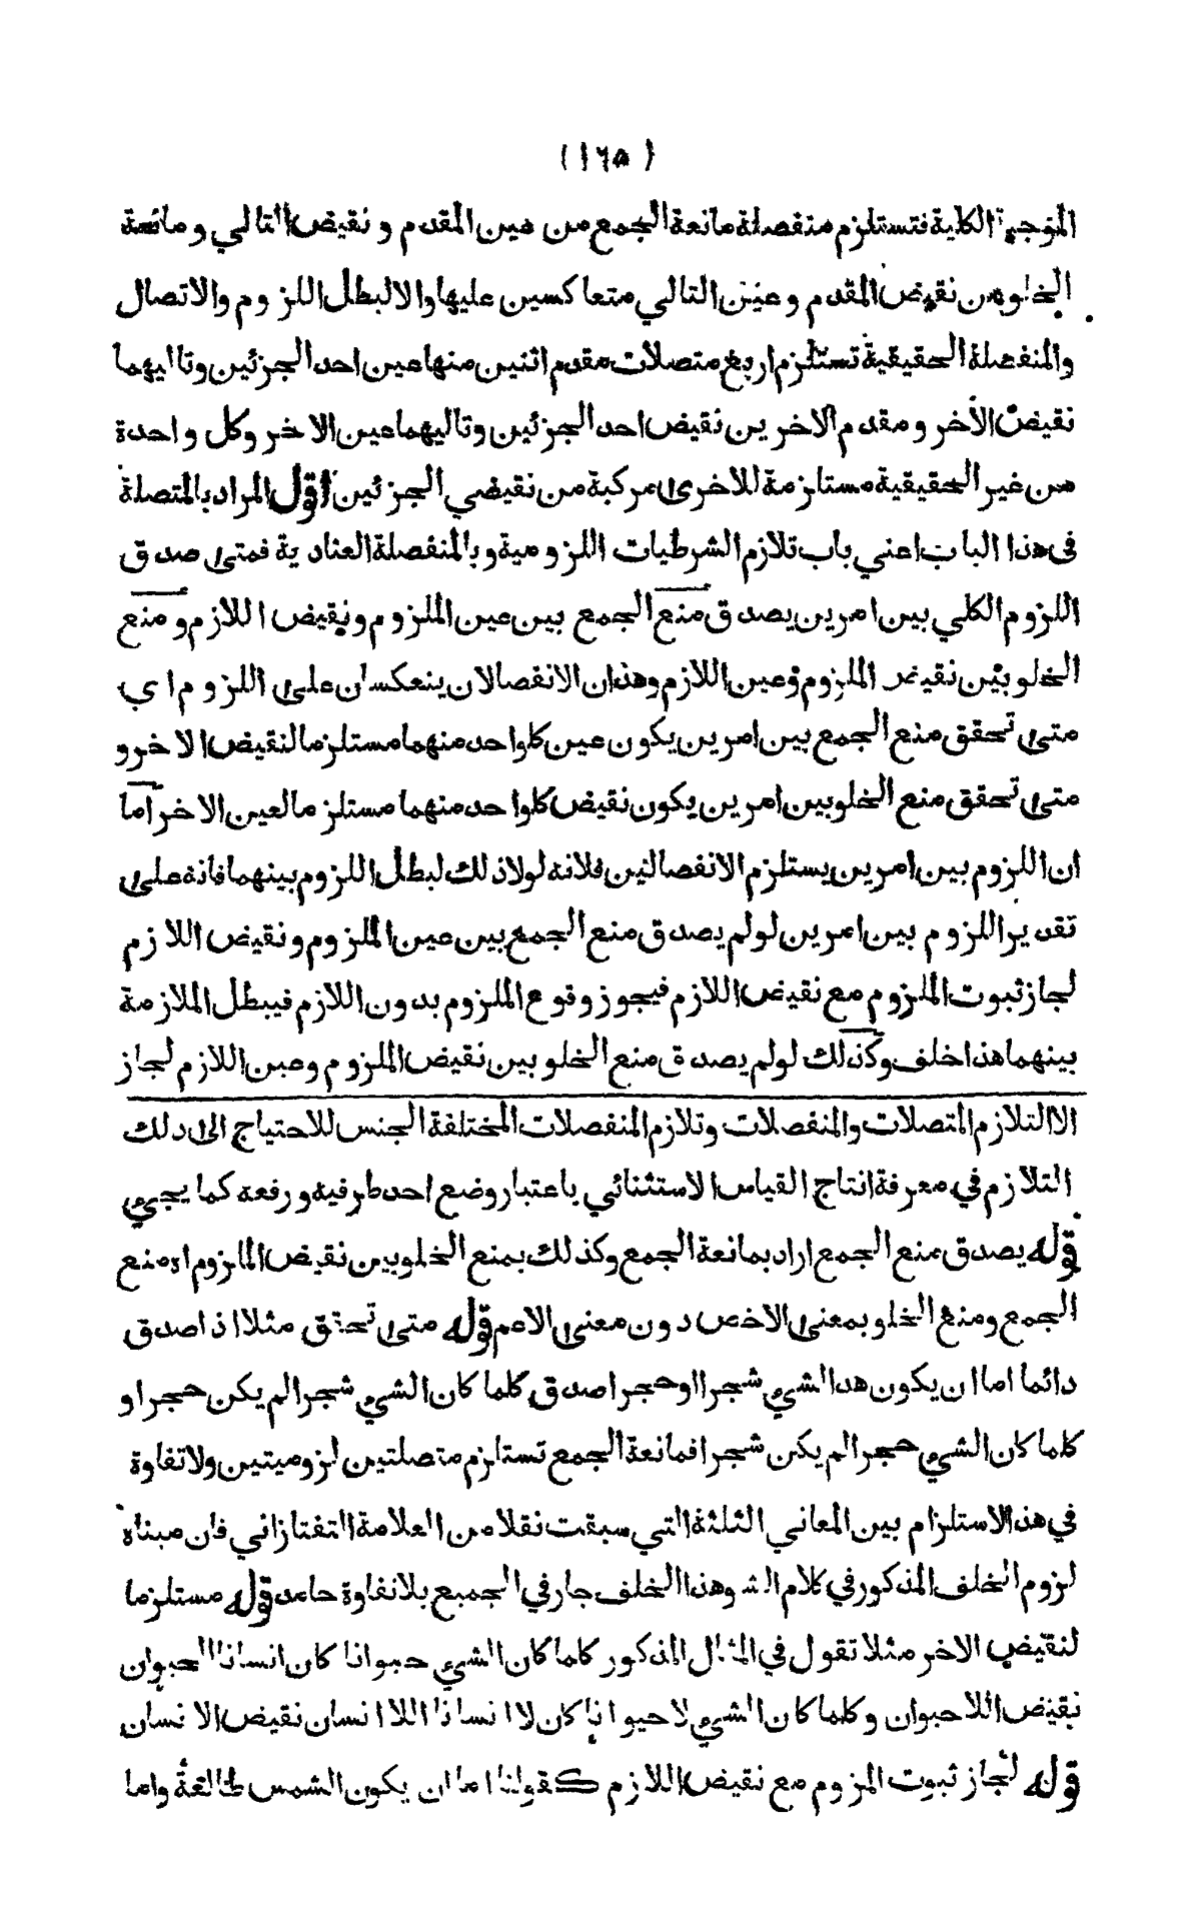 (١٦٥)
الموجبة الكلية فتستلزم منفصلة مانعة الجمع من عين المقدم و نقيض التالي و مانعة
الخلو من نقيض المقدم و عين التالي متعاكسين عليها والا لبطل اللزوم والاتصال
والمنفصلة الحقيقية تستلزم اربع متصلات مقدم اثنين منها عين احد الجزئين وتاليهما
نقيض الأخر و مقدم الاخرين نقيض احد الجزئين وتاليهما عين الاخر وكل واحدة
من غير الحقيقية مستلزمة للاخرى مركبة من نقيضي الجزئين اقول المراد بالمتصلة
فى هذا الباب اعني باب تلازم الشرطيات اللزومية وبالمنفصلة العنادية فمتى صدق
اللزوم الكلي بين امرين يصدق منع الجمع بين عين الملزوم ونقيض اللازم ومنع
الخلو بين نقيض الملزوم وعين اللازم وهذان الانفصالان ينعكسان على اللزوم اي
متى تحقق منع الجمع بين امرين يكون عين كلواحد منهما مستلزما لنقيض الاخر و
متى تحقق منع الخلو بين امرين يكون نقيض كلواحد منهما مستلزما لعين الاخر اما
ان اللزوم بين امرين يستلزم الانفصالين فلانه لولا ذلك لبطل اللزوم بينهما فانه على
تقدير اللزوم بين امرين لو لم يصدق منع الجمع بين عين الملزوم و نقيض اللازم
لجاز ثبوت الملزوم مع نقيض اللازم فيجوز وقوع الملزوم بدون اللازم فيبطل الملازمة
بينهما هذا خلف وكذلك لو لم يصدق منع الخلو بين نقيض الملزوم وعين اللازم لجاز
الا التلازم المتصلات والمنفصلات وتلازم المنفصلات المختلفة الجنس للاحتياج الى ذلك
التلازم في معرفة انتاج القياس الاستثنائي باعتبار وضع احد طرفيه و رفعه كما يجيء
قوله يصدق منع الجمع اراد بمانعة الجمع وكذلك بمنع الخلو بين نقيض الملزوم اه منع
الجمع ومنع الخلو بمعنى الاخص دون معنى الاعم قوله متى تحقق مثلا اذا صدق
دائما اما ان يكون هذا الشيء شجرا او حجرا صدق كلما كان الشيء شجرا لم يكن حجرا و
كلما كان الشيء حجرا لم يكن شجرا فمانعة الجمع تستلزم متصلتين لزوميتين ولا تفاوة
في هذ الاستلزام بين المعاني الثلثة التي سبقت نقلا من العلامة التفتازاني فان مبناه
لزوم الخلف المذكور في كلام الشـ وهذا الخلف جار في الجميع بلا تفاوة حامد قوله مستلزما
لنقيض الاخر مثلا تقول في المثال المذكور كلما كان الشيء حيوانا كان انسانا الحيوان
نقيض اللاحيوان و كلما كان الشيء لا حيوانا كان لا انسانا اللا انسان نقيض الانسان
قوله لجاز ثبوت المزوم مع نقيض اللازم كقولنا اما ان يكون الشمس طالعة واما